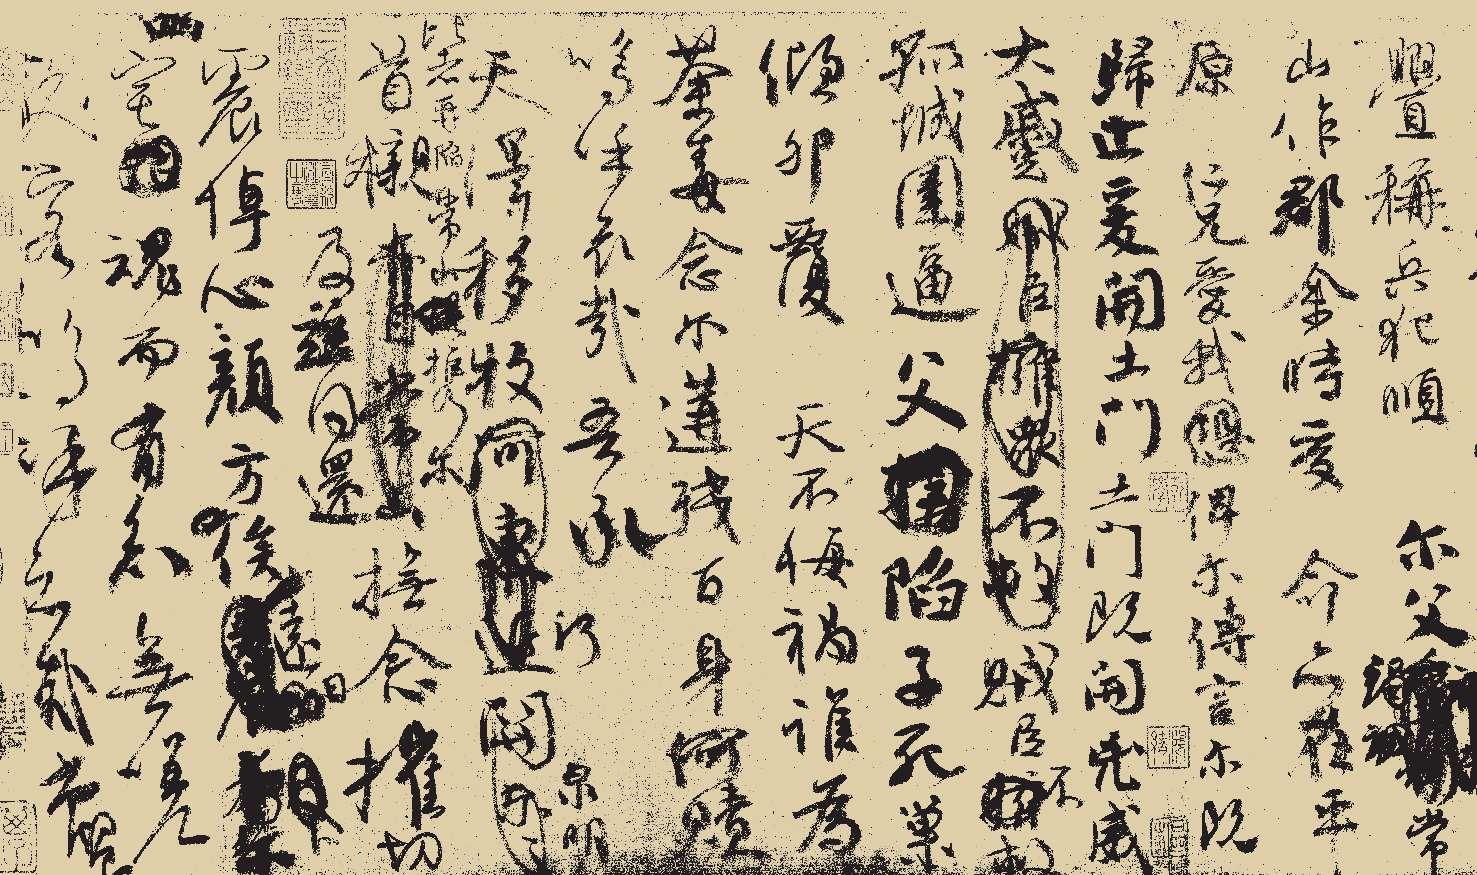 舋稱兵犯順 尔父竭誠常
山作郡余時受 命亦在平
原仁兄愛我俾尔傳言尔既
歸止爰開土門土門既開凶威
大蹙賊臣擁眾不救賊臣不救
孤城圍逼父陷子死巢
傾卵覆 天不悔禍誰為
荼毒念尔遘殘百身何贖
嗚乎哀哉吾承
天澤移牧河東近河關泉明
比者再陷常山攜尔
首櫬亦自常山撫念摧切
及茲同還
震悼心顏方俟遠日
宅魂而有知無嗟
久客嗚呼哀哉尚饗